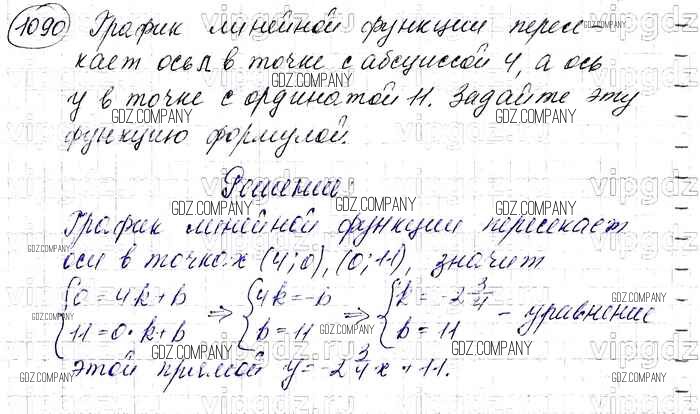 1090 График линейной функции пересе-
кает ось х в точке с абсциссой 4, а ось
у в точке с ординатой 11. Задайте эту
функцию формулой.
Решение
График линейной функции пересекает
оси в точках (4;0), (0;11), значит
{0=4k+b {4k=-b {k=-2 3/4
{11=0·k+b ⇒ {b=11 ⇒ {b=11 - уравнение
этой прямой y=-2 3/4 x+11.